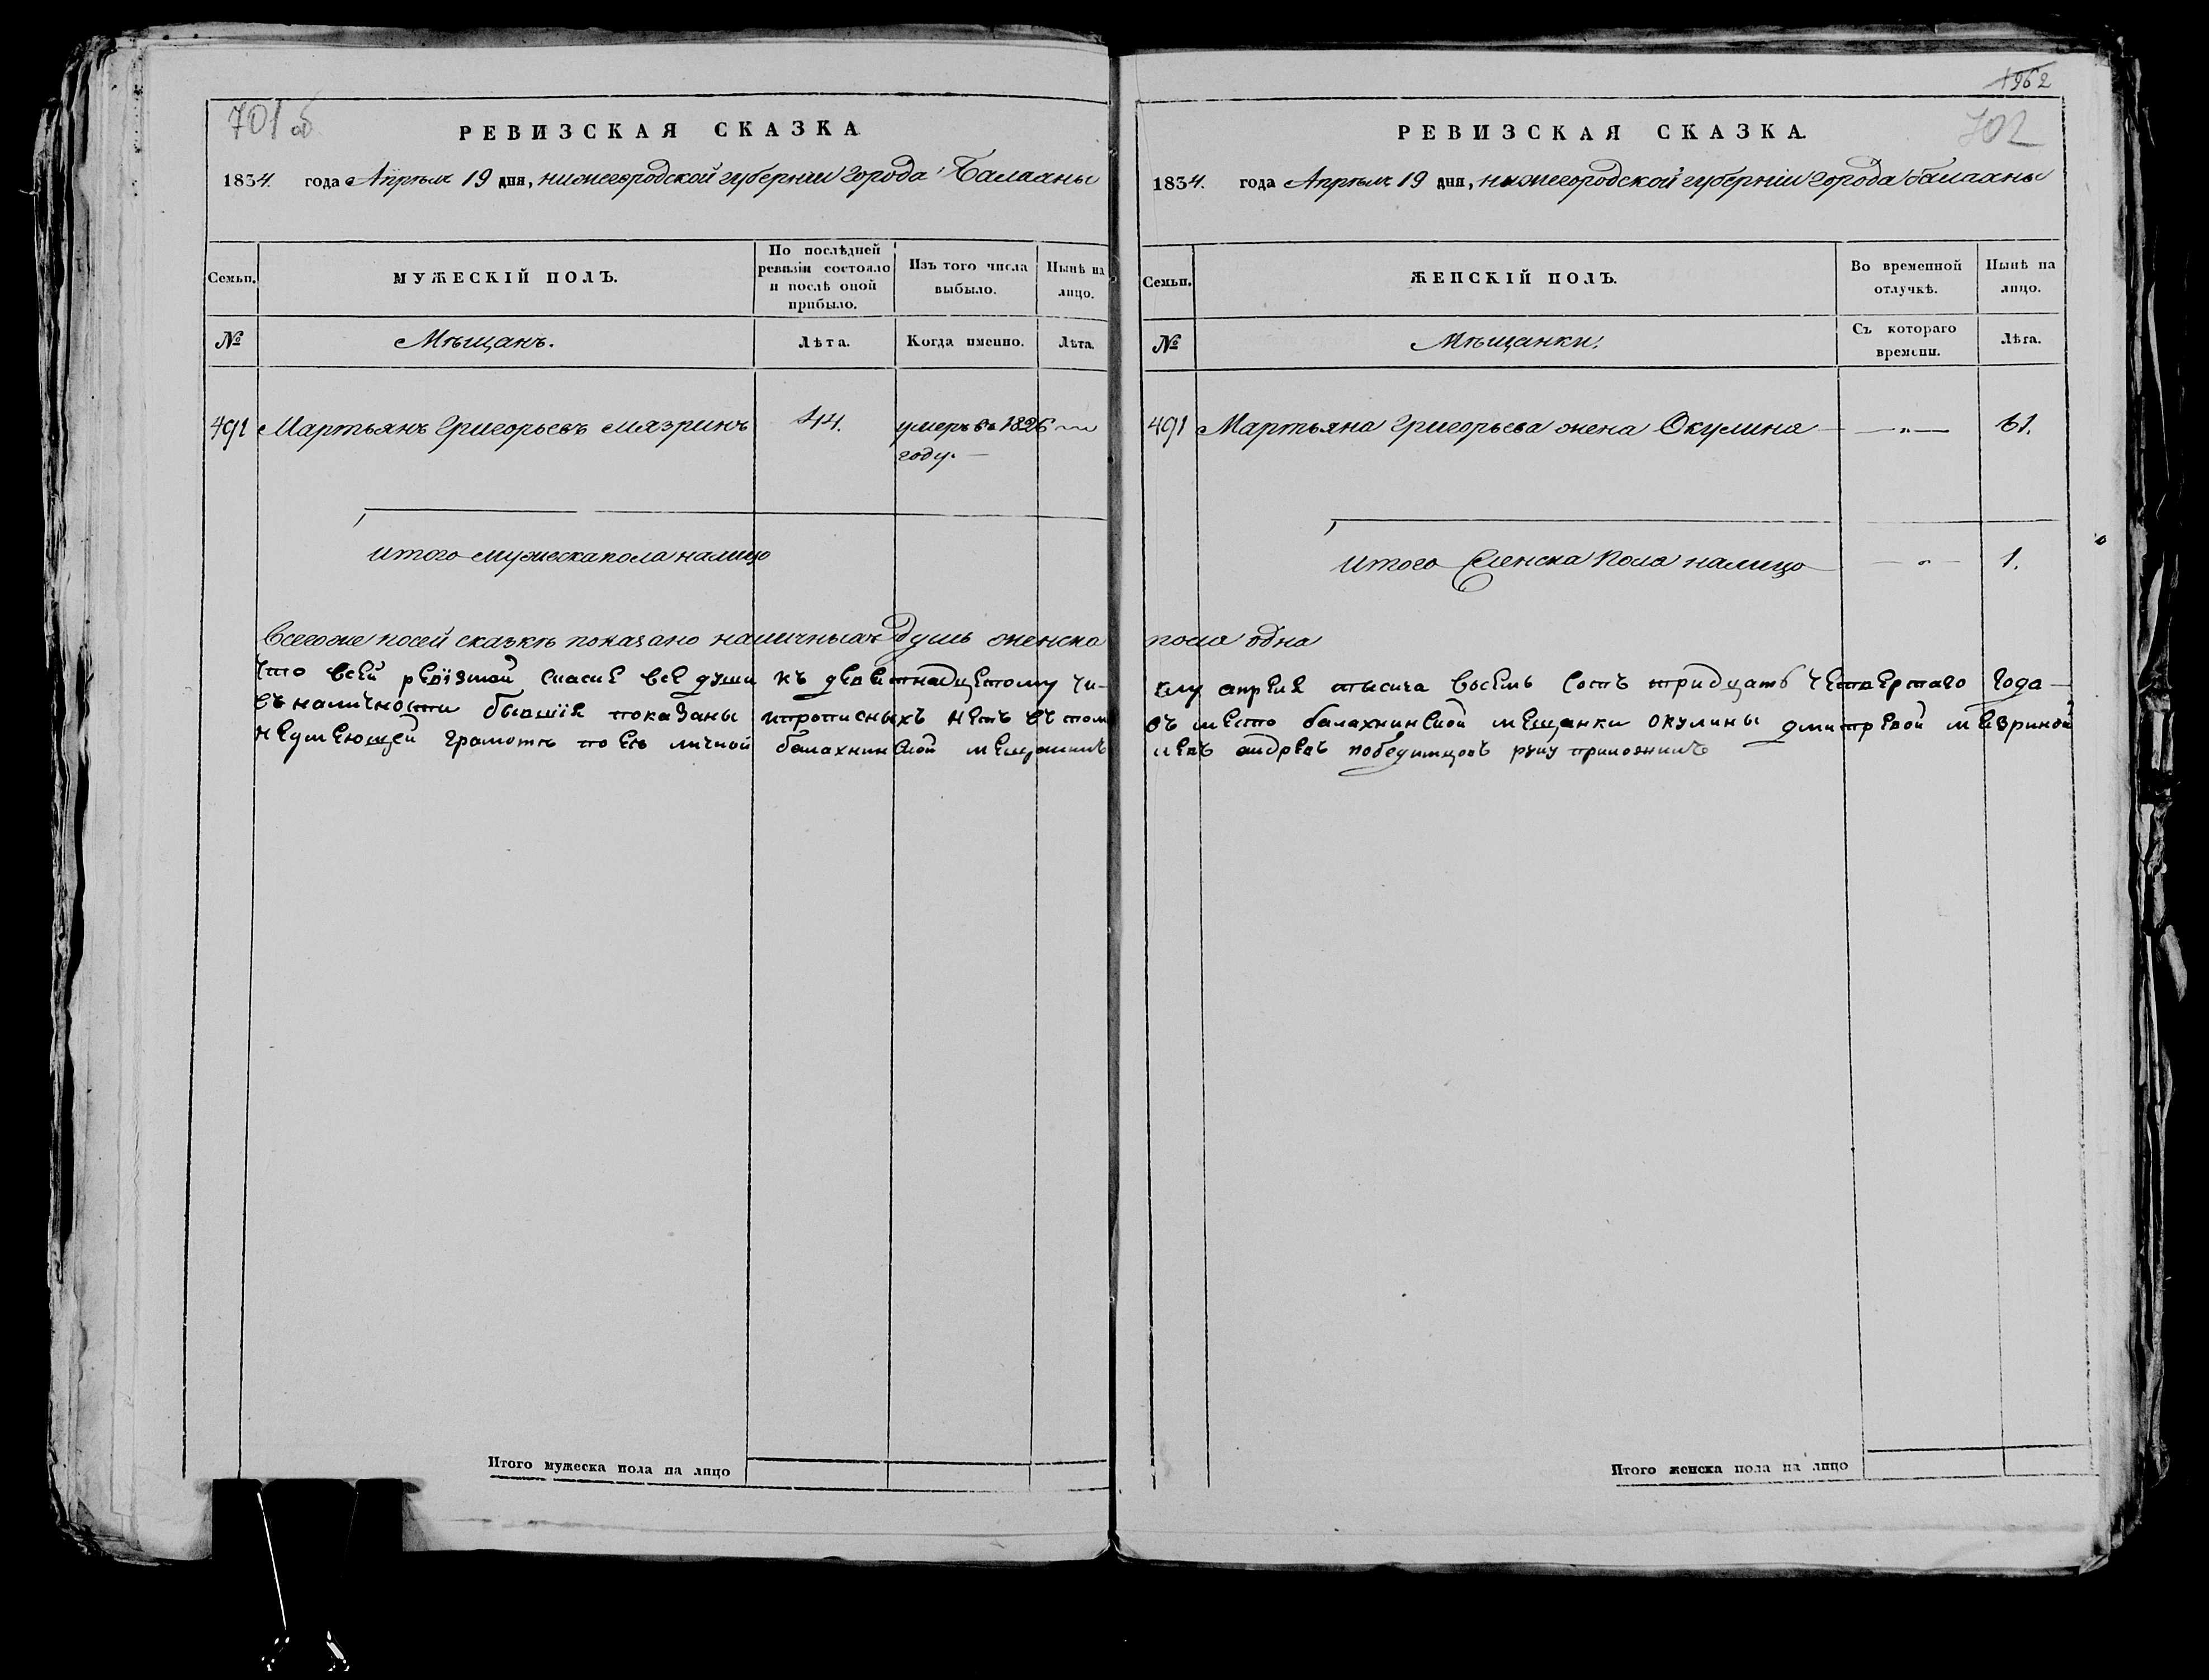 701 об
РЕВИЗСКАЯ СКАЗКА
1834. года Апрѣля 19 дня, нижегородской губернии города Балахны
Семьи.
МУЖЕСКІЙ ПОЛЪ.
По послѣдней ревизіи состояло и послѣ оной прибыло.
Изъ того числа выбыло.
Нынѣ на лицо.
№
Мѣщанъ.
Лѣта.
Когда именно.
Лѣта.
491 Мартьянъ Григорьевъ Мязринъ 44. умеръ въ 1826
году.
итого мужеска пола налицо
Всего же посей сказкѣ показано наличныхъ душъ женска
что всей ревїзской скаске все души къ деветнадцетому чи-
съ наличности бывшїе показаны ипрописныхъ нетъ въ томъ
неумеющей грамотѣ по ее личной балахнинской мещанинъ
Итого мужеска пола на лицо
1962
702
РЕВИЗСКАЯ СКАЗКА.
1834. года Апрѣля 19 дня, нижегородской губерніи города балахны
Семьи.
ЖЕНСКІЙ ПОЛЪ.
Во временной отлучкѣ.
Нынѣ на лицо.
№
Мѣщанки.
Съ котораго времени.
Лѣта.
491 Мартьяна Григорьева жена Окулина — „ — 61.
Итого Женска Пола налицо — „ — 1.
пола одна
слу апреля тысеча восемь сотъ тридцать четвертаго года
въ место балахнинской мещанки окулины дмитревой мезриной
андревъ победитцовъ руку приложилъ
Итого женска пола на лицо